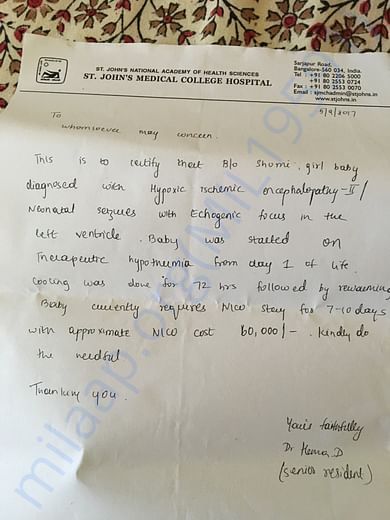 ST. JOHN'S NATIONAL ACADEMY OF HEALTH SCIENCES
ST. JOHN'S MEDICAL COLLEGE HOSPITAL
Sarjapur Road,
Bangalore-560 034, India.
Tel : +91 80 2206 5000
+91 80 2553 0724
Fax : +91 80 2553 0070
Email : sjmchadmin@stjohns.in
www.stjohns.in
5/9/2017
To
whomsoever may concern.
This is to certify that B/o Shumi, girl baby
diagnosed with Hypoxic Ischemic encephalopathy-II/
Neonatal seizures with Echogenic focus in the
left ventricle. Baby was started on
Therapeutic hypothermia from day 1 of life.
cooling was done for 72 hrs followed by rewarming
Baby currently requires NICU stay for 7-10 days
with approximate NICU cost 60,000/-. kindly do
the needful
Thanking you.
Yours faithfully
Dr Hema.D
(senior resident)